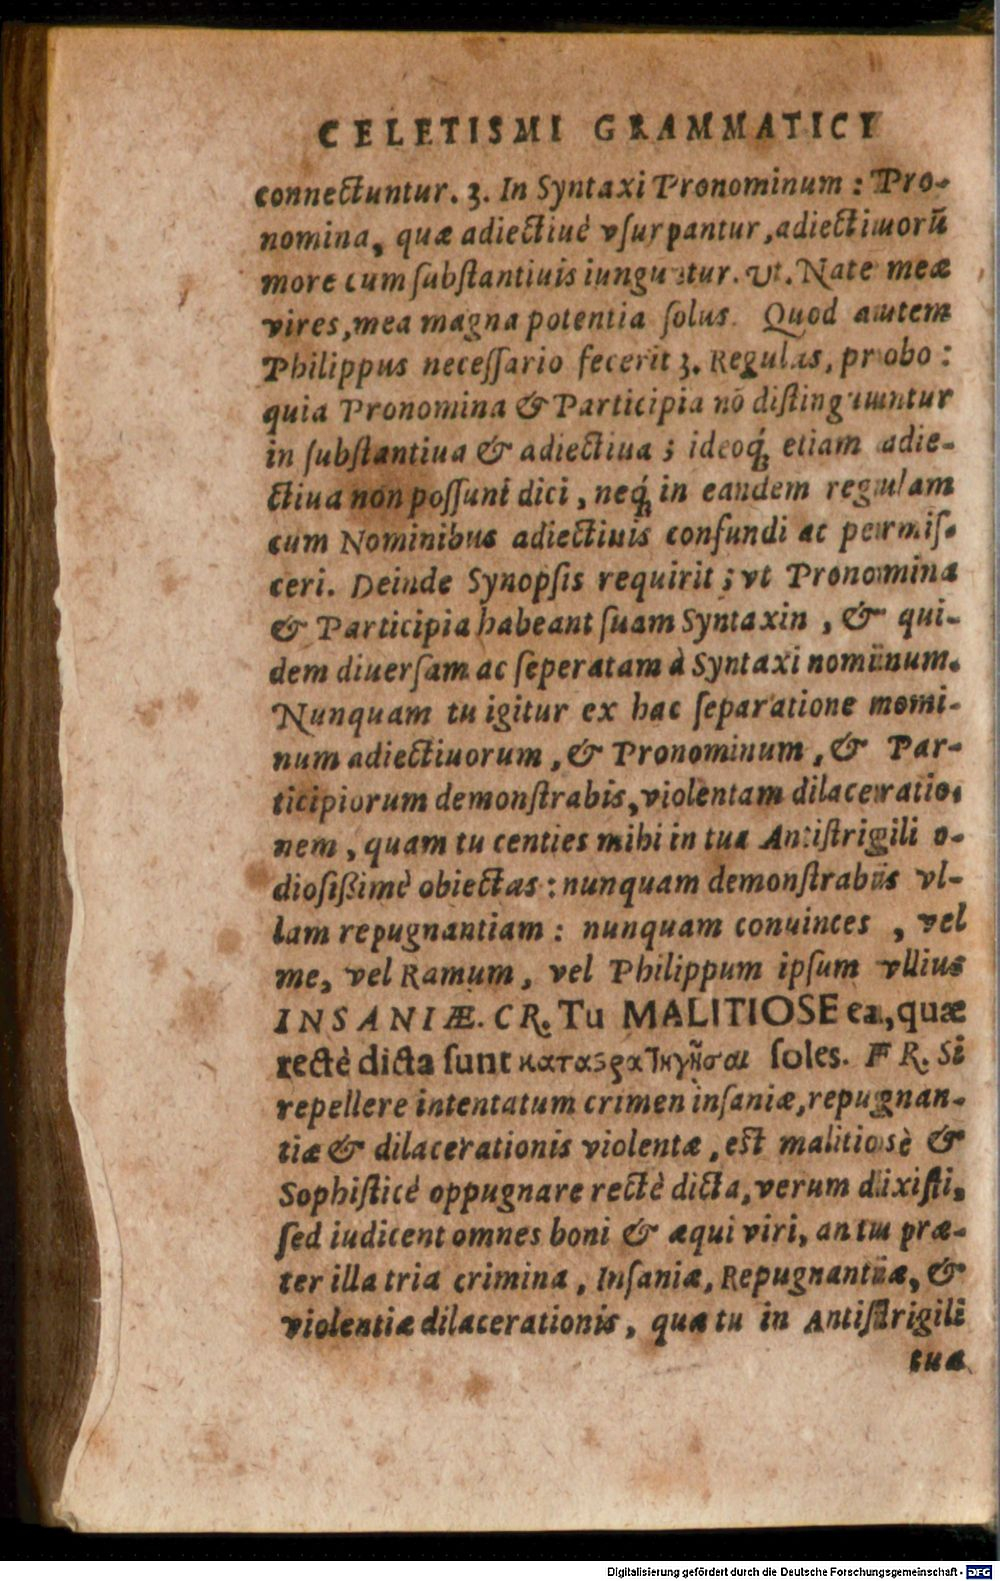 CELETISMI GRAMMATICI
connectuntur. 3. In Syntaxi Pronominum : Pro-
nomina, quæ adiectiuè vſurpantur, adiectiuorũ
more cum ſubſtantiuis iunguntur. Vt. Nate meæ
vires, mea magna potentia ſolus. Quod autem
Philippus neceſſario fecerit 3. Regulas, probo :
quia Pronomina & Participia nõ diſtinguuntur
in ſubſtantiua & adiectiua ; ideoq́; etiam adie-
ctiua non poſſunt dici, neq́; in eandem regulam
cum Nominibus adiectiuis confundi ac permiſ-
ceri. Deinde Synopſis requirit ; vt Pronomina
& Participia habeant ſuam Syntaxin, & qui-
dem diuerſam ac ſeperatam à Syntaxi nominum.
Nunquam tu igitur ex hac ſeparatione nomi-
num adiectiuorum, & Pronominum, & Par-
ticipiorum demonſtrabis, violentam dilaceratio-
nem, quam tu centies mihi in tua Antiſtrigili o-
dioſißimè obiectas : nunquam demonſtrabis vl-
lam repugnantiam : nunquam conuinces , vel
me, vel Ramum, vel Philippum ipſum vllius
INSANIÆ. CR. Tu MALITIOSE ea, quæ
rectè dicta ſunt καταστρατηγῆσαι ſoles. FR. Si
repellere intentatum crimen inſaniæ, repugnan-
tiæ & dilacerationis violentæ, eſt malitiosè &
Sophiſticè oppugnare rectè dicta, verum dixiſti,
ſed iudicent omnes boni & æqui viri, an tu præ-
ter illa tria crimina, Inſaniæ, Repugnantiæ, &
violentiæ dilacerationis, quæ tu in Antiſtrigili
tua
Digitalisierung gefördert durch die Deutsche Forschungsgemeinschaft - DFG